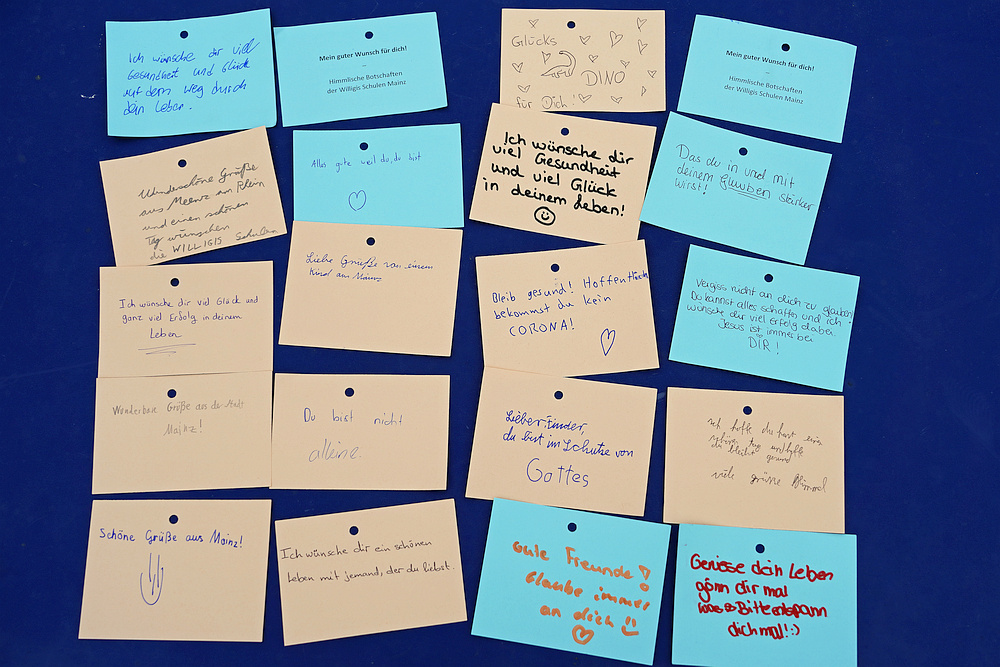 Ich wünsche dir viel
Gesundheit und Glück
auf dem Weg durch
dein Leben.
Mein guter Wunsch für dich!
–
Himmlische Botschaften
der Willigis Schulen Mainz
Glücks
DINO
für Dich!
Mein guter Wunsch für dich!
–
Himmlische Botschaften
der Willigis Schulen Mainz
Wunderschöne Grüße
aus Meenz am Rhein
und einen schönen
Tag wünschen
die WILLIGIS Schulen
Alles gute weil du, du bist
Ich wünsche dir
viel Gesundheit
und viel Glück
in deinem Leben!
Das du in und mit
deinem Glauben stärker
wirst!
Ich wünsche dir viel Glück und
ganz viel Erfolg in deinem
Leben
Liebe Grüße von einem
Kind aus Mainz
Bleib gesund! Hoffentlich
bekommst du kein
CORONA!
Vergiss nicht an dich zu glauben!
Du kannst alles schaffen und ich
wünsche dir viel Erfolg dabei.
Jesus ist immer bei
DIR!
Wunderbare Grüße aus der Stadt
Mainz!
Du bist nicht
alleine.
Lieber Finder,
du bist im Schutze von
Gottes
ich hoffe du hast einen
schönen tag und hoffe
du bleibst gesund
viele grüße
Schöne Grüße aus Mainz!
Ich wünsche dir ein schönen
Leben mit jemand, der du liebst.
Gute Freunde!
Glaube immer
an dich
Geniesse dein Leben
gönn dir mal
was Bitte entspann
dich mal! :)